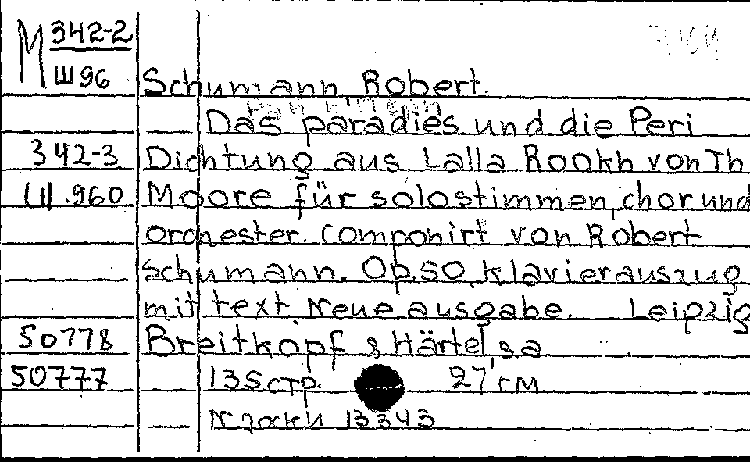 М 342-2
Ш96
Schumann, Robert.
Das paradies und die Peri
342-3 Dichtung aus Lalla Rookh von Th
Ш.960 Moore für solostimmen, chor und
orchester. componirt von Robert
Schumann. Op.50. Klavierauszug
mit text. Neue ausgabe. Leipzig
50778 Breitkopf & Härtel, s a
50777 135 стр. 27 см
13343